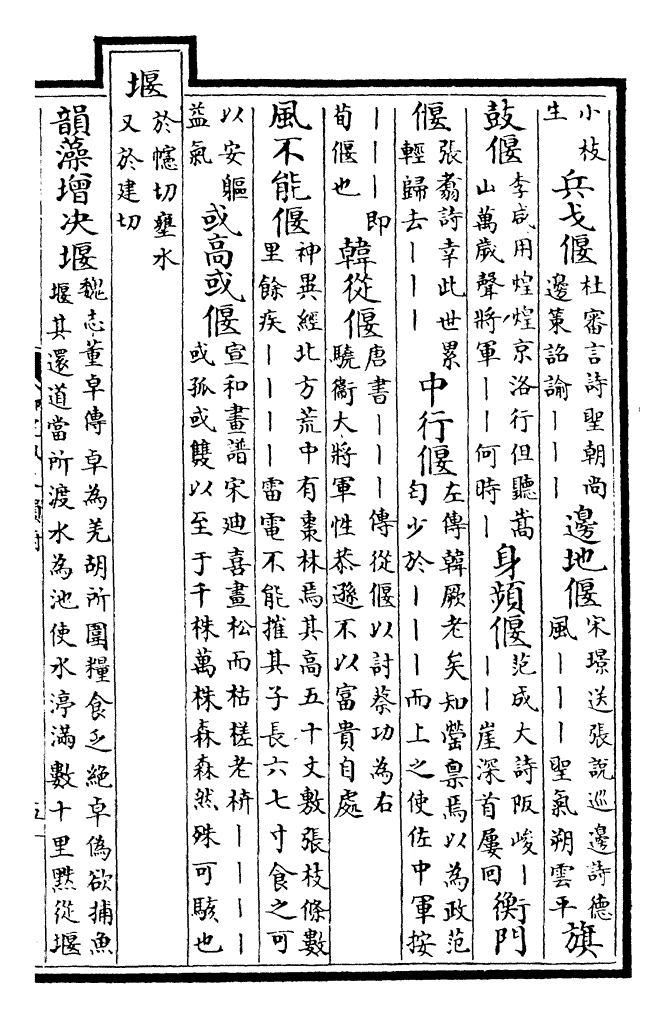 小枝生兵戈偃杜審言詩聖朝尚邊策詔諭｜｜｜邊地偃宋璟送張說巡邊詩德風｜｜｜聖氣朔雲平旗
鼓偃李咸用煌煌京洛行但聽嵩山萬歲聲將軍｜｜何時｜身頻偃范成大詩阪峻｜｜｜崖深首屢回衡門
偃張翥詩幸此世累輕歸去｜｜｜中行偃左傳韓厥老矣知罃禀焉以為政范匄少於｜｜｜而上之使佐中軍按
｜｜｜即荀偃也韓從偃唐書｜｜｜傳從偃以討蔡功為右驍衞大將軍性恭遜不以富貴自處
風不能偃神異經北方荒中有棗林焉其高五十丈敷張枝條數里餘疾｜｜｜｜雷電不能摧其子長六七寸食之可
以安軀益氣或高或偃宣和畫譜宋廸喜畫松而枯槎老枿｜｜｜｜或孤或雙以至于千株萬株森森然殊可駭也
堰於幰切壅水又於建切
韻藻增决堰魏志董卓傳卓為羌胡所圍糧食乏絶卓偽欲捕魚堰其還道當所渡水為池使水渟滿數十里黙從堰